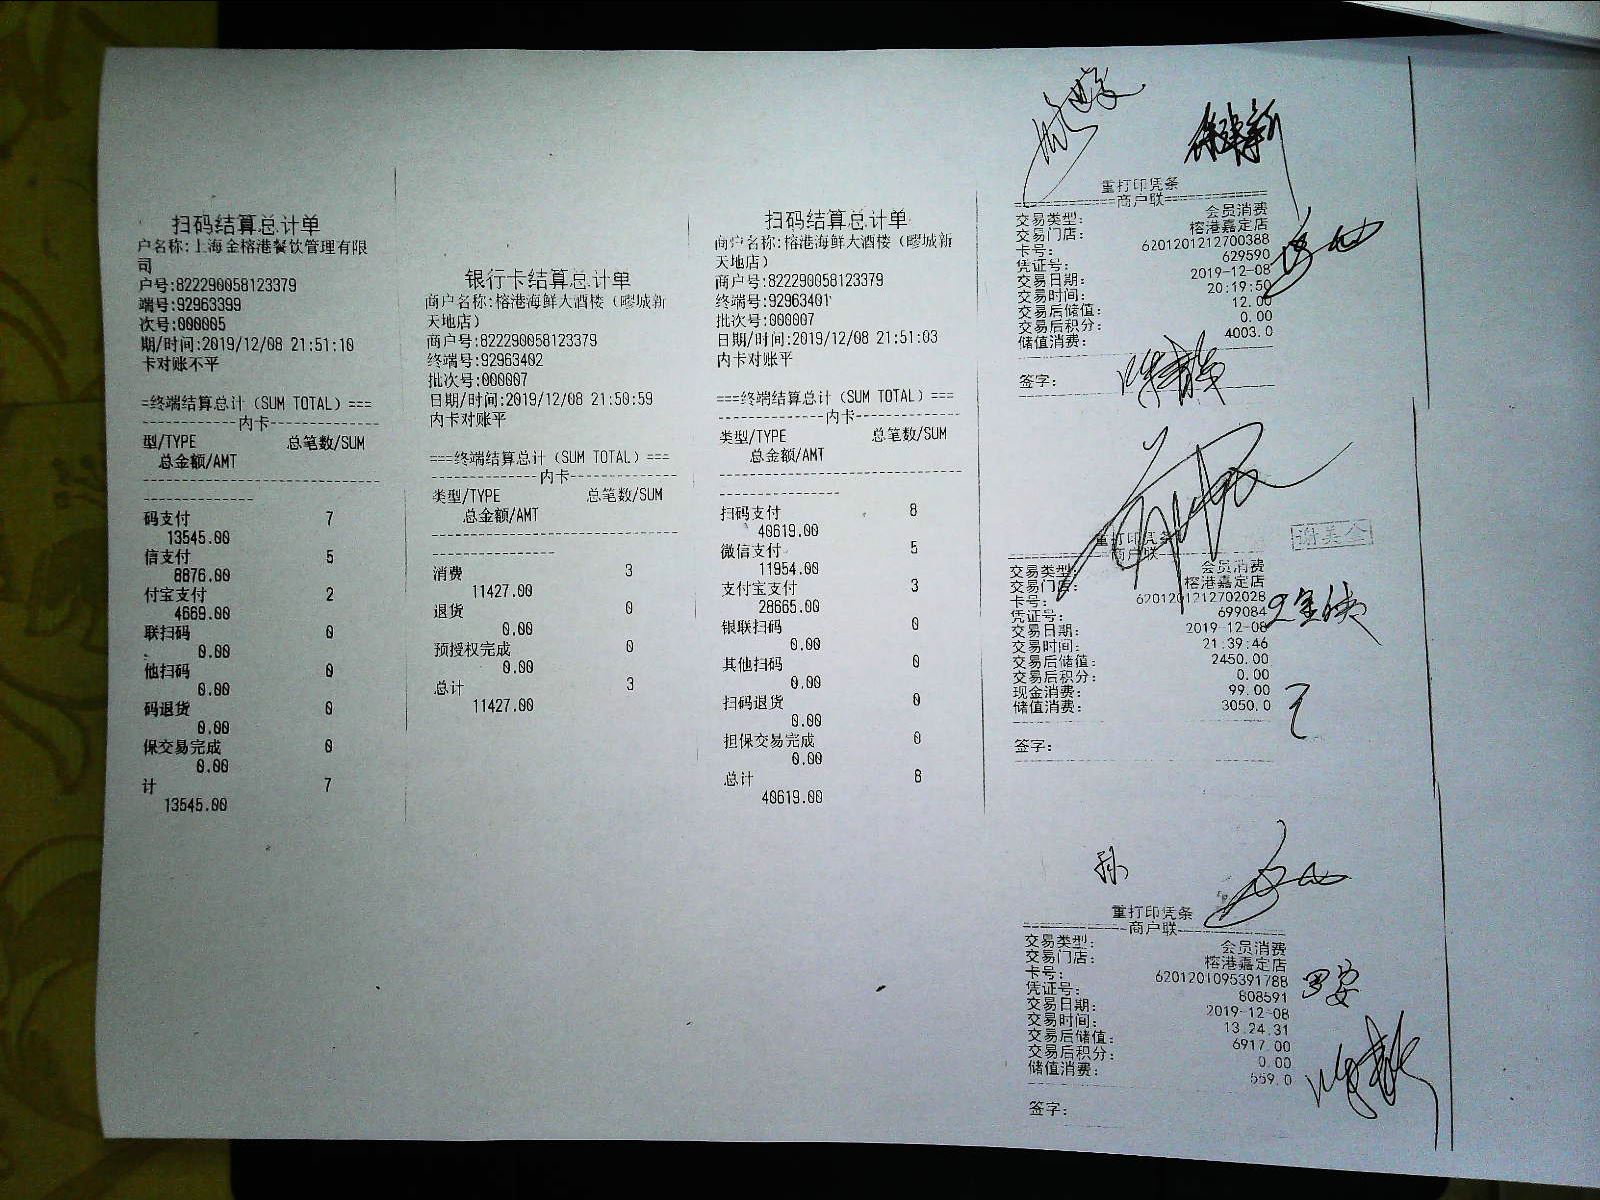 扫码结算总计单
户名称:上海金榕港餐饮管理有限
司
户号:822290058123379
端号:92963399
次号:000005
期/时间:2019/12/08 21:51:10
卡对账不平
=终端结算总计（SUM TOTAL）===
内卡
型/TYPE 总笔数/SUM
总金额/AMT
码支付 7
13545.00
信支付 5
8876.00
付宝支付 2
4669.00
联扫码 0
0.00
他扫码 0
0.00
码退货 0
0.00
保交易完成 0
0.00
计 7
13545.00
银行卡结算总计单
商户名称:榕港海鲜大酒楼（疁城新
天地店）
商户号:822290058123379
终端号:92963402
批次号:000007
日期/时间:2019/12/08 21:50:59
内卡对账平
===终端结算总计（SUM TOTAL）===
内卡
类型/TYPE 总笔数/SUM
总金额/AMT
消费 3
11427.00
退货 0
0.00
预授权完成 0
0.00
总计 3
11427.00
扫码结算总计单
商户名称:榕港海鲜大酒楼（疁城新
天地店）
商户号:822290058123379
终端号:92963401
批次号:000007
日期/时间:2019/12/08 21:51:03
内卡对账平
===终端结算总计（SUM TOTAL）===
内卡
类型/TYPE 总笔数/SUM
总金额/AMT
扫码支付 8
40619.00
微信支付 5
11954.00
支付宝支付 3
28665.00
银联扫码 0
0.00
其他扫码 0
0.00
扫码退货 0
0.00
担保交易完成 0
0.00
总计 8
40619.00
重打印凭条
商户联
交易类型: 会员消费
交易门店: 榕港嘉定店
卡号: 6201201212700388
凭证号: 629590
交易日期: 2019-12-08
交易时间: 20:19:50
交易后储值: 12.00
交易后积分: 0.00
储值消费: 4003.0
签字:
重打印凭条
商户联
谢美金
交易类型: 会员消费
交易门店: 榕港嘉定店
卡号: 6201201212702028
凭证号: 699084
交易日期: 2019-12-08
交易时间: 21:39:46
交易后储值: 2450.00
交易后积分: 0.00
现金消费: 99.00
储值消费: 3050.0
签字:
孙
重打印凭条
商户联
交易类型: 会员消费
交易门店: 榕港嘉定店
卡号: 6201201095391788
凭证号: 808591
交易日期: 2019-12-08
交易时间: 13:24:31
交易后储值: 6917.00
交易后积分: 0.00
储值消费: 559.0
签字: